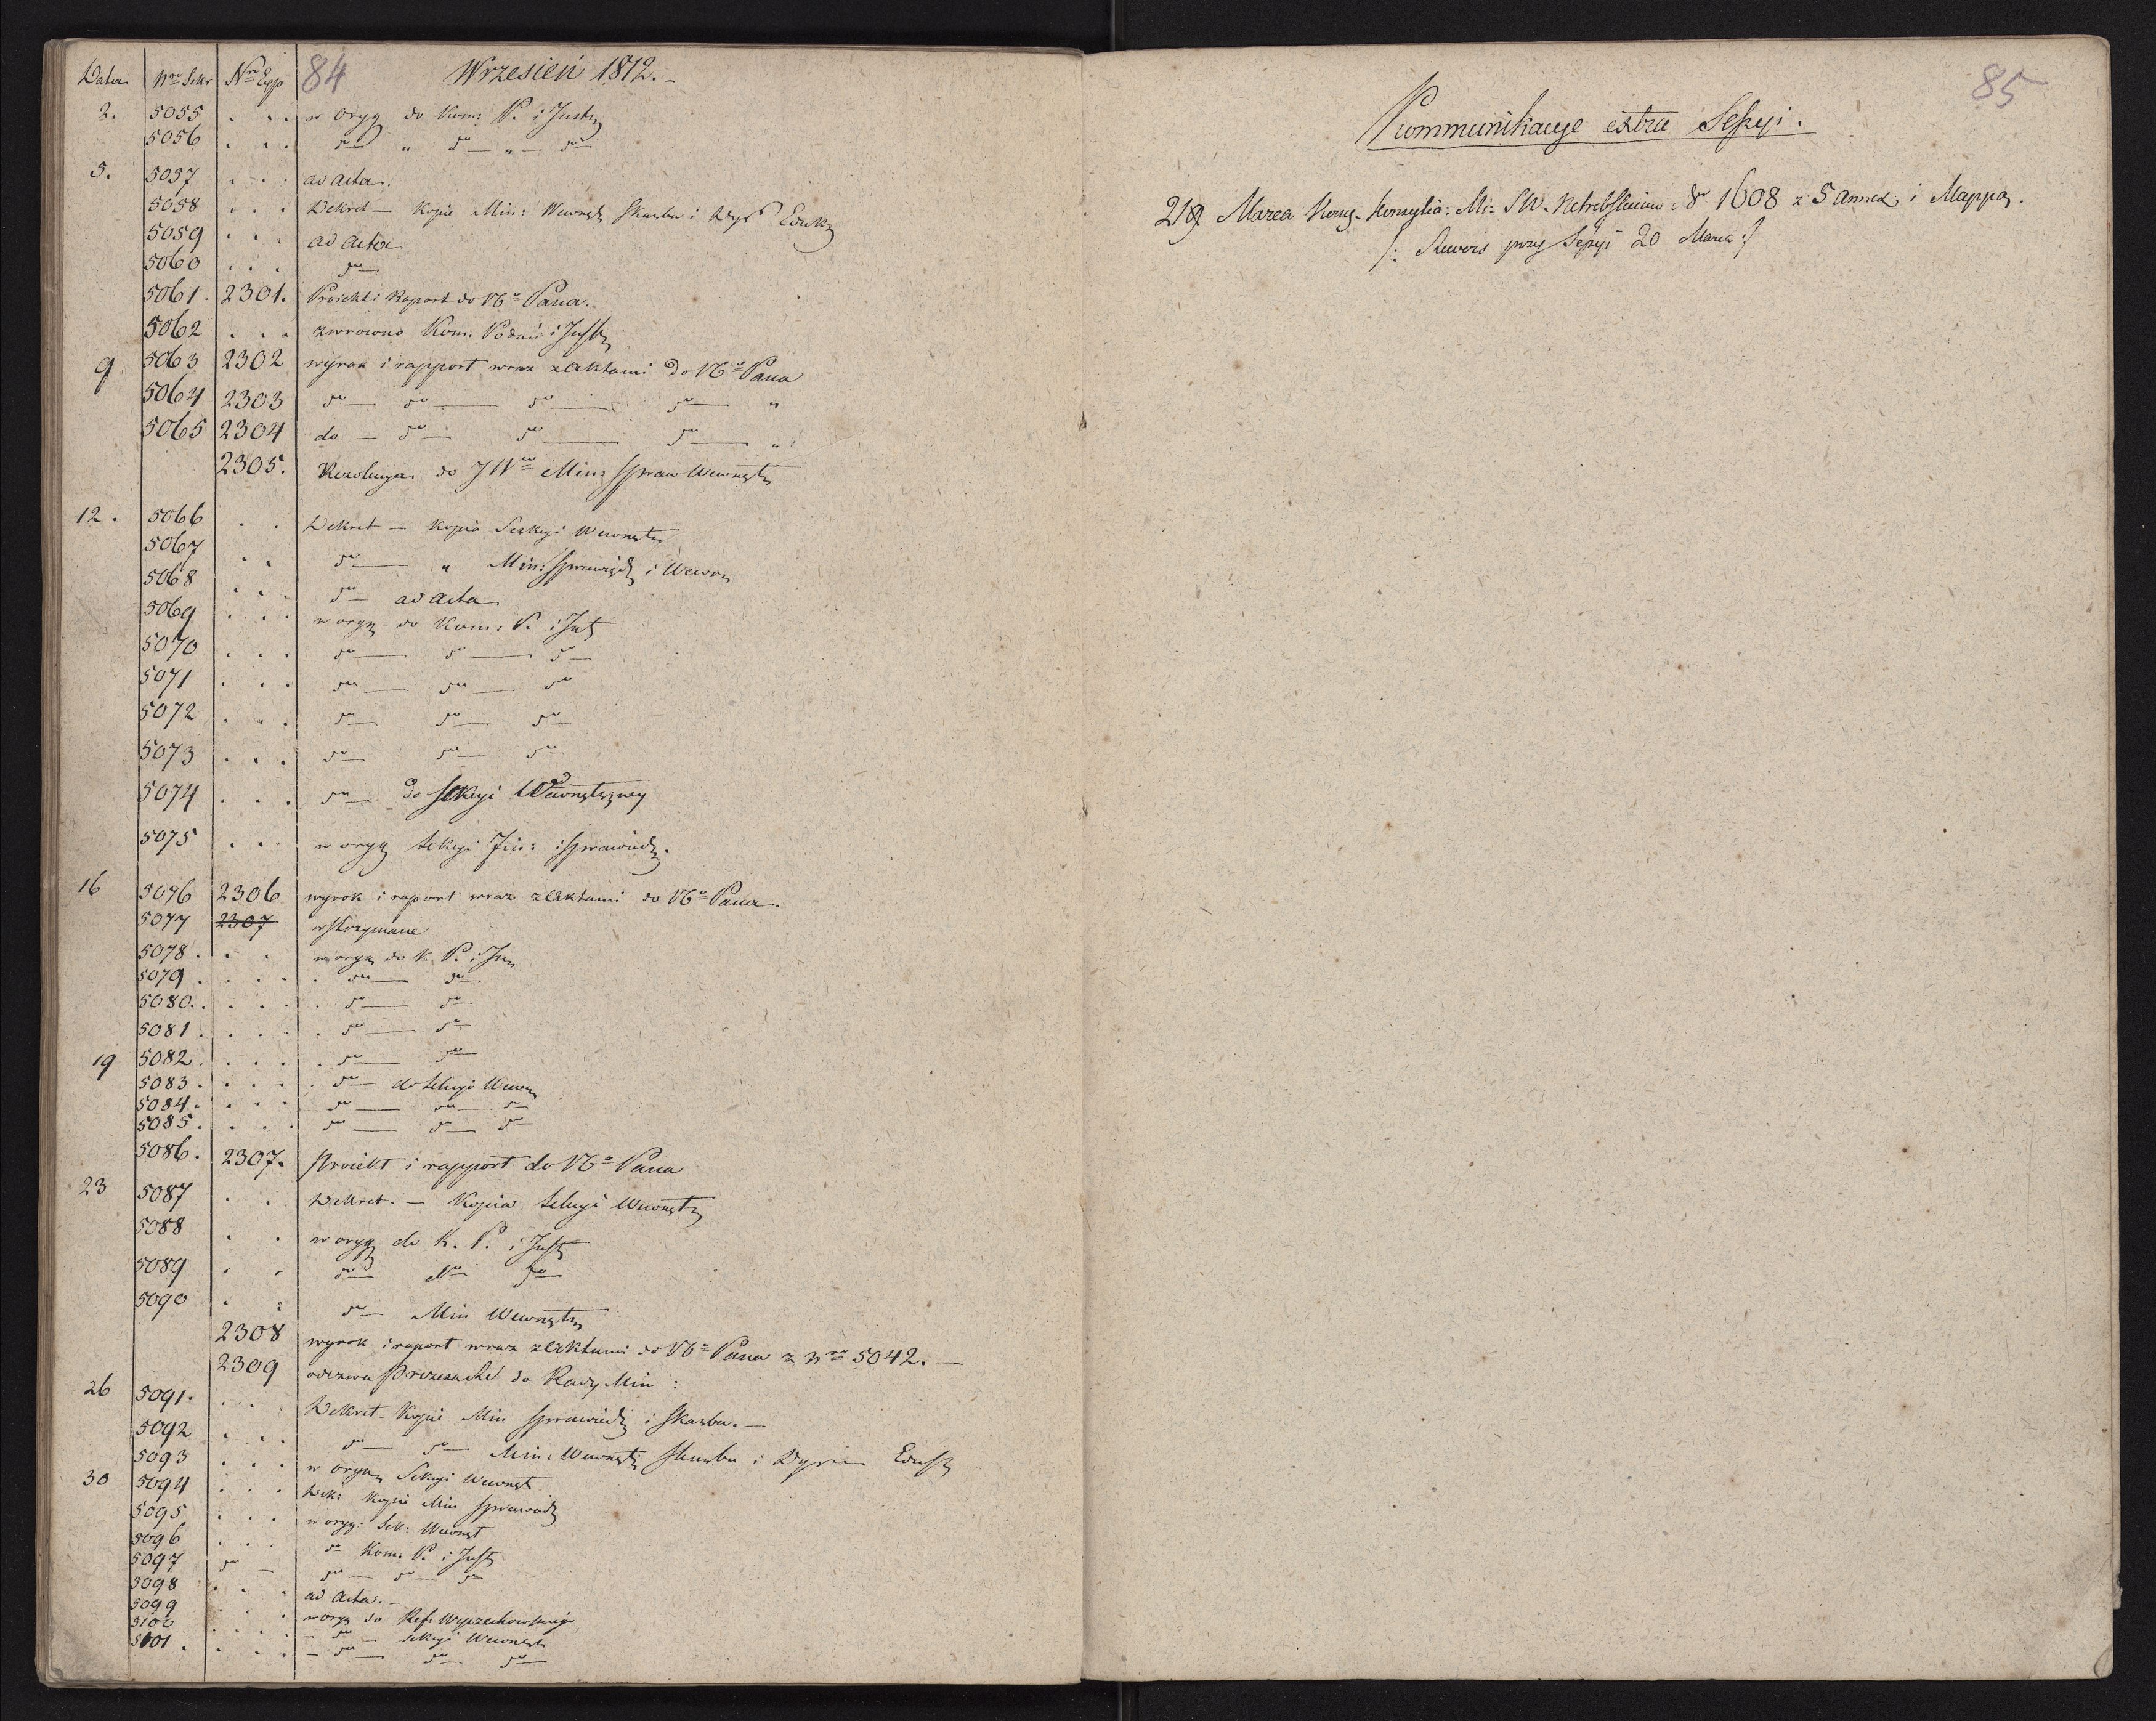 Data Nro Sekr Nro Exp 84 Wrzesień 1812. –
2. 5055 . . . w oryg do Kom: P. i Justy
5056 . . . do „ do „ do
5. 5057 . . . ad acta.
5058 . . . Dekret – Kopie Min: Wewnętr Skarbu i Dyr Eduk
5059 . . . ad acta
5060 . . . do
5061. 2301. Proiekt: Raport do NGo Pana.
5062 . . . zwrocono Kom: Podań i Just
9 5063 2302 wyrok i rapport wraz z Aktami do NGo Pana
5064 2303 do do do do „
5065 2304 do – do do do „
2305. Rezolucya do JWo Min: Spraw Wewnętr
12. 5066 . . Dekret – Kopia Sekcyi Wewnętr
5067 . . do „ Min: Sprawiedl i Wewn
5068 . . . do ad acta
5069 . . . w oryg do Kom: P. i Just
5070 . . . do do do
5071 . . . do do do
5072 . . . do do do
5073 . . . do do do
5074 . . . do do Sekcyi Wewnętrzney
5075 . . w oryg Sekcyi i Sprawiedl.
16 5076 2306 wyrok i raport wraz z Aktami do NGo Pana.
5077 2307 wstrzymane
5078. . . w oryg do K. P. i Jus
5079. . . . . do do
5080. . . . . do do
5081. . . . . do do
19 5082. . . . . do do
5083. . . . . do do Sekcyi Wewn
5084. . . . do do do
5085. . . . do do do
5086. 2307. Proiekt i rapport do NGo Pana
23 5087 . . Dekret. – Kopia Sekcyi Wewnętr
5088 . . w oryg do K. P. i Just
5089 . . do do do
5090 . . do Min Wewnętr
2308 wyrok i raport wraz z Aktami do NGo Pana z Nro 5042. –
2309 odezwa Prezesa do Rady Min:
26 5091. . . Dekret. Kopie Min Sprawiedl i Skarbu. –
5092 . . . do do Min: Wewnętr Skarbu i Dyr Eduk
5093 . . . w oryg Sekcyi Wewnęt
30 5094 . . . Dek: Kopie Min Sprawiedl
5095 . . . w oryg: Sek: Wewnęt
5096 . . . do Kom: P. i Just
5097 do – do do do
5098 . . . ad acta. –
5099 . . w oryg do Ref: Wyczechowskiego
5100 . . . . – do – Sekcyi Wewnętr
5101. . . . – do do do
85
Kommunikacye extra Sessyi.
21/9. Marca Kong. Konsylia: Mi: SW. No 1608 z 5 annex i Mappą.
/: Rewers przy Sessyi 20 Marca :/